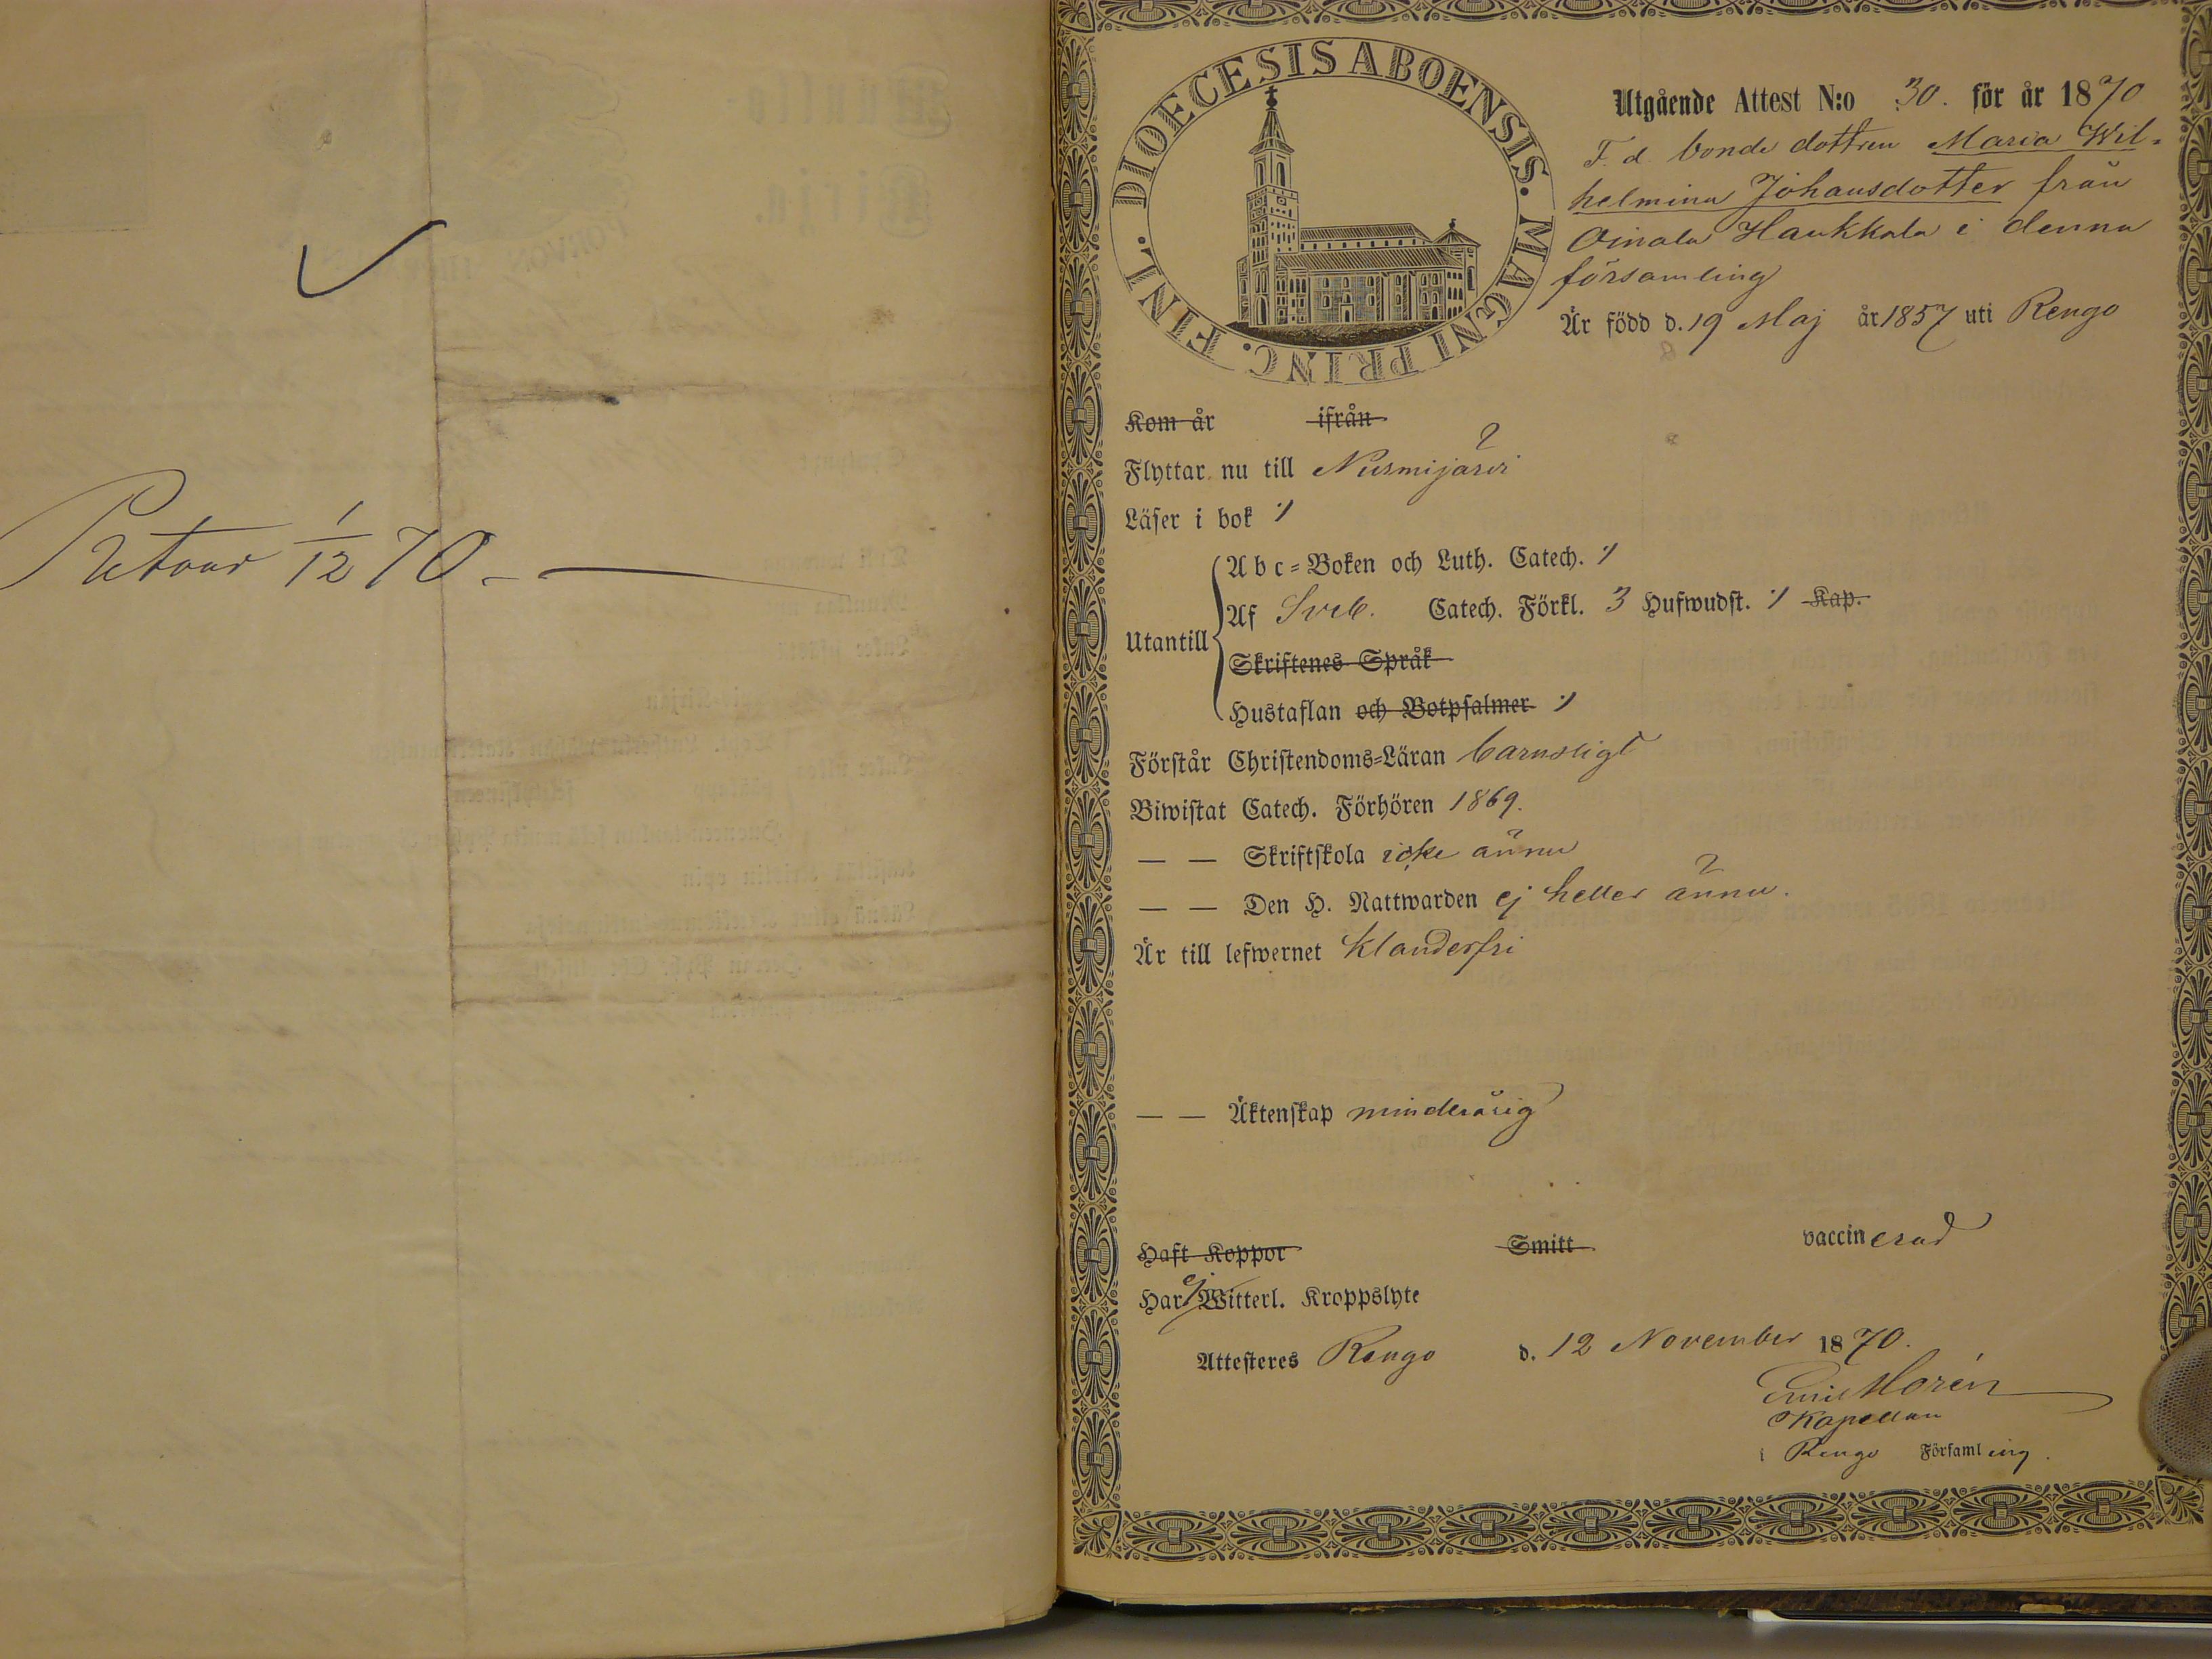 Retour 1/12 70
DIOECESIS ABOENSIS. MAGNI PRINC. FINL.
Utgående Attest N:o 30. för år 1870
F. d. bonde dottren Maria Wil-
helmina Johansdotter från
Oinala Haukkala i denna
församling
Är född d. 19 Maj år 1857 uti Rengo
Kom år ifrån
Flyttar nu till Nurmijärvi
Läser i bok ⁒
Utantill
Abc-Boken och Luth. Catech. ⁒
Af Sveb. Catech. Förkl. 3 Hufwudst. ⁒ Kap.
Skriftenes Språk
Hustaflan och Botpsalmer ⁒
Förstår Christendoms-Läran barnsligt
Biwistat Catech. Förhören 1869.
— — Skriftskola icke ännu
— — Den H. Nattwarden ej heller ännu.
Är till lefwernet klanderfri
— — Äktenskap minderårig
Haft Koppor Smitt vaccinerad
Har ej Witterl. Kroppslyte
Attesteres Rengo d. 12 November 1870.
Emil Morén
Kapellan
i Rengo Församling.